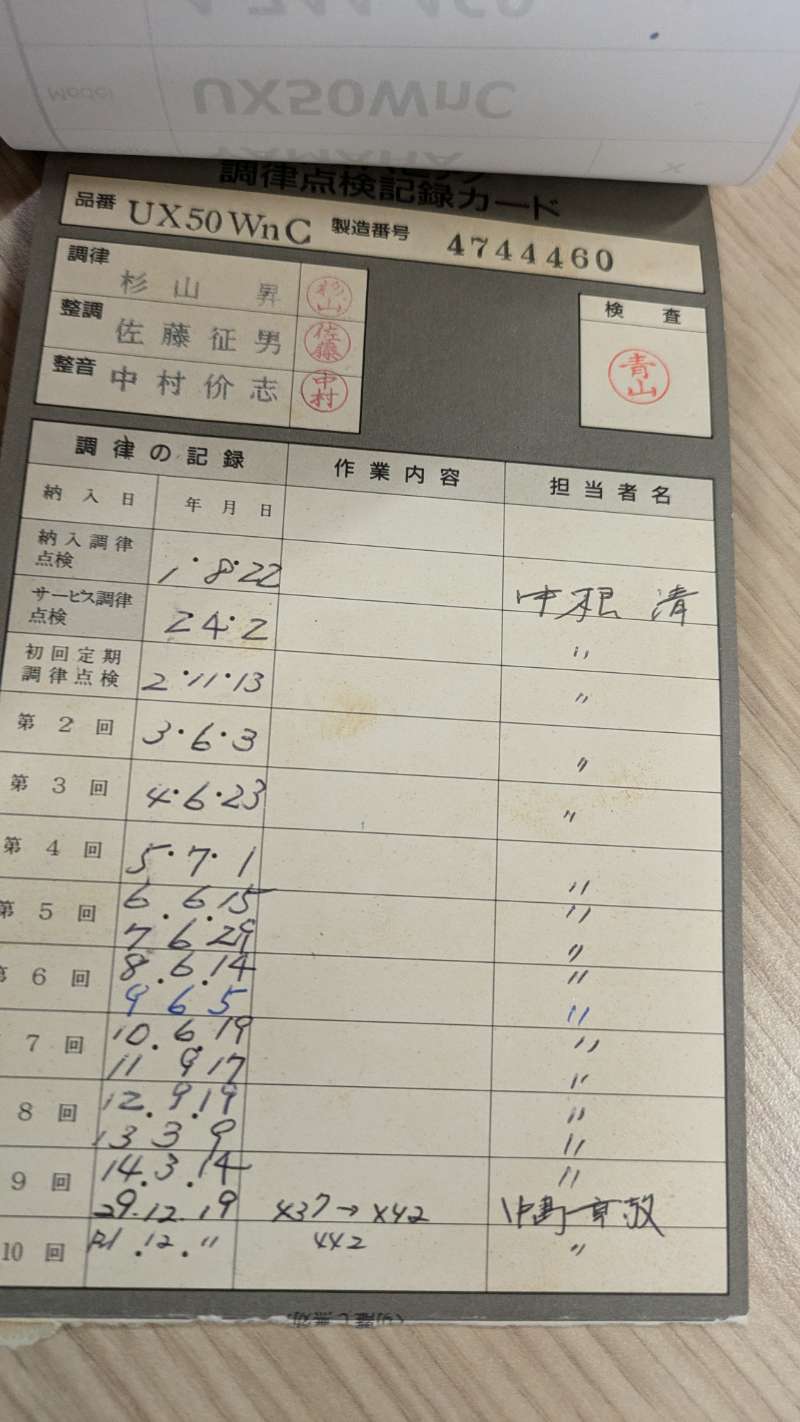 Model
UX50WnC
調律点検記録カード
品番 UX50WnC 製造番号 4744460
調律 杉山 昇 杉山
整調 佐藤征男 佐藤
整音 中村价志 中村
検査
青山
調律の記録 作業内容 担当者名
納入日 年月日
納入調律点検 1・8・22 中根 清
サービス調律点検 2 4・2 〃
初回定期調律点検 2・11・13 〃
第2回 3・6・3 〃
第3回 4・6・23 〃
第4回 5・7・1 〃
第5回 6.6.15 〃
7 6 29 〃
6回 8.6.14 〃
9 6 5 〃
7回 10.6.19 〃
11 9 17 〃
8回 12.9.19 〃
13 3 9 〃
9回 14.3.14 〃
29.12.19 437→442
10回 R1.12.〃 442 〃